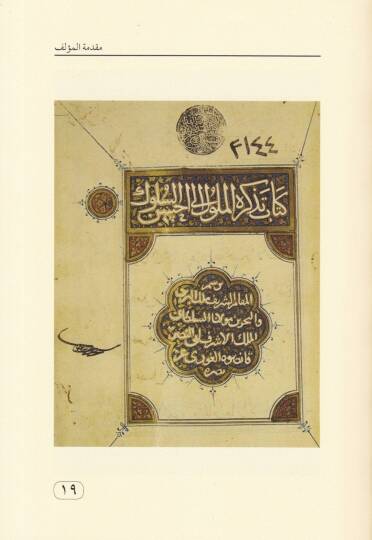 مقدمة المؤلف
٤١٤٤
كتاب تذكرة الملوك الى احسن السلوك
برسم
المقام الشريف ملك البرين
والبحرين مولانا السلطان
الملك الاشرف ابى النصر
قانصوه الغورى عز
نصره
١٩